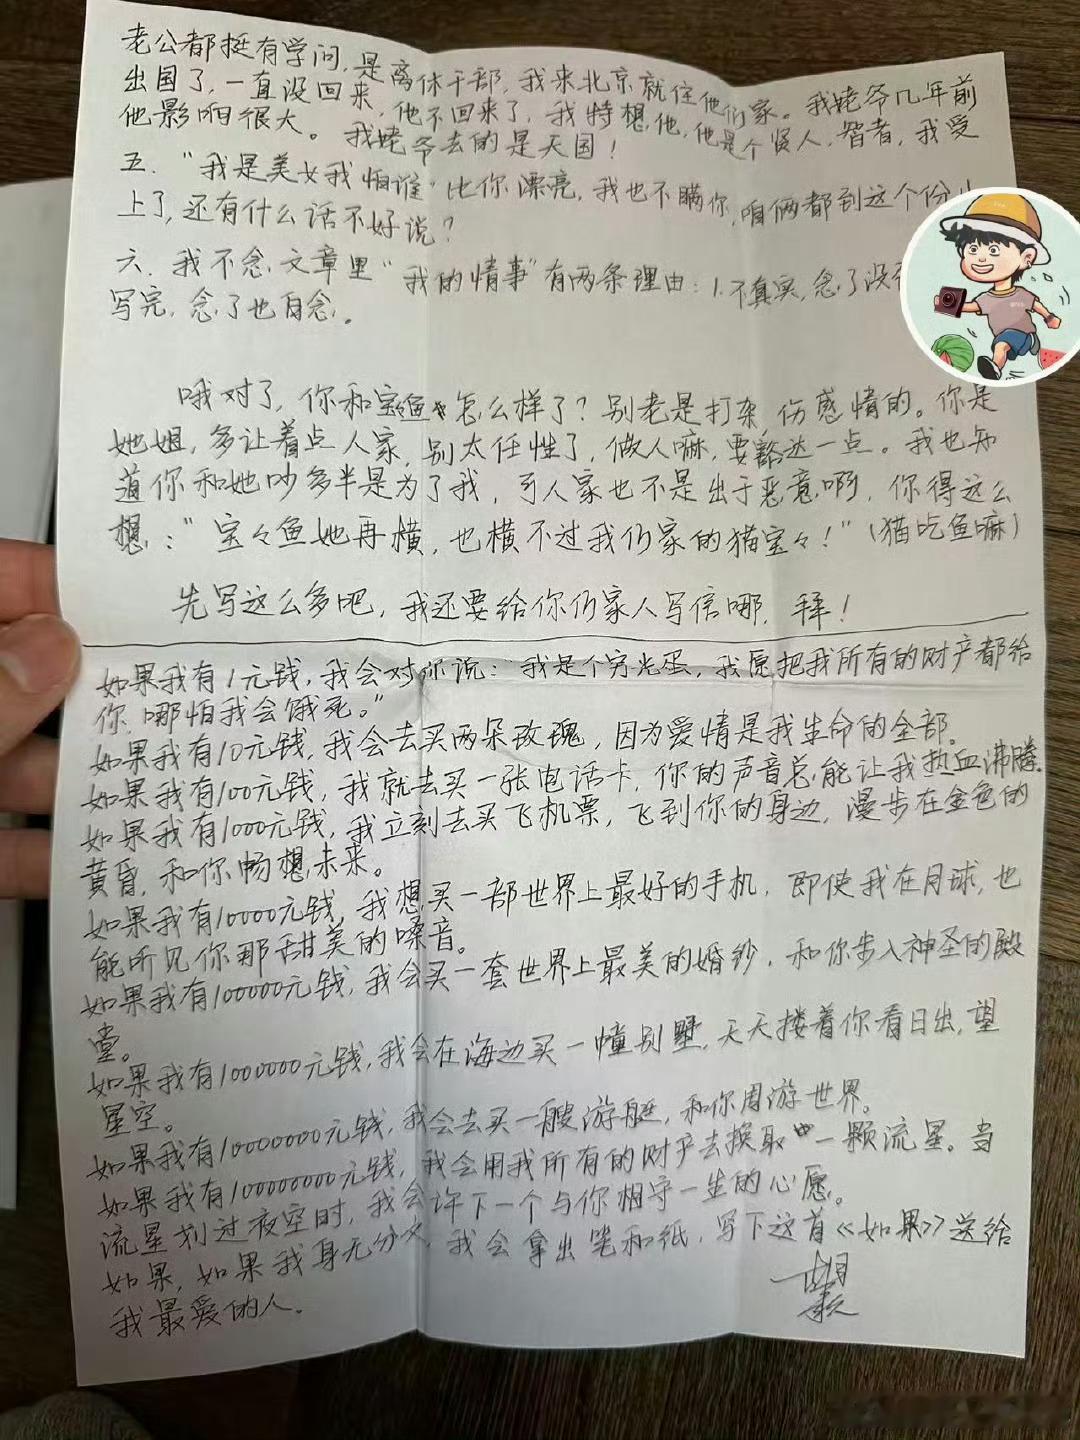 老公都挺有学问,是离休干部,我来北京就住他们家。我姥爷几年前
出国了,一直没回来,他不回来了,我特想他,他是个贤人,智者,我受
他影响很大。我姥爷去的是天国!
五."我是美女我怕谁"比你漂亮,我也不瞒你,咱俩都到这个份儿
上了,还有什么话不好说?
六.我不念文章里"我的情事"有两条理由:1.不真实,念了没
写完,念了也白念。
哦对了,你和宝鱼怎么样了?别老是打杂,伤感情的。你是
她姐,多让着点人家,别太任性了,做人嘛,要豁达一点。我也知
道你和她吵多半是为了我,可人家也不是出于恶意啊,你得这么
想:"宝々鱼她再横,也横不过我们家的猫宝々!"(猫吃鱼嘛)
先写这么多吧,我还要给你们家人写信哪,拜!
如果我有1元钱,我会对你说:"我是个穷光蛋,我愿把我所有的财产都给
你,哪怕我会饿死。"
如果我有10元钱,我会去买两朵玫瑰,因为爱情是我生命的全部。
如果我有100元钱,我就去买一张电话卡,你的声音总能让我热血沸腾.
如果我有1000元钱,我立刻去买飞机票,飞到你的身边,漫步在金色的
黄昏,和你畅想未来。
如果我有10000元钱,我想买一部世界上最好的手机,即使我在月球,也
能听见你那甜美的嗓音。
如果我有100000元钱,我会买一套世界上最美的婚钞,和你步入神圣的殿
堂。
如果我有1000000元钱,我会在海边买一幢别墅,天天搂着你看日出,望
星空。
如果我有10000000元钱,我会去买一艘游艇,和你周游世界。
如果我有100000000元钱,我会用我所有的财产去换取一颗流星。当
流星划过夜空时,我会许下一个与你相守一生的心愿。
如果,如果我身无分文,我会拿出笔和纸,写下这首《如果》送给
我最爱的人。